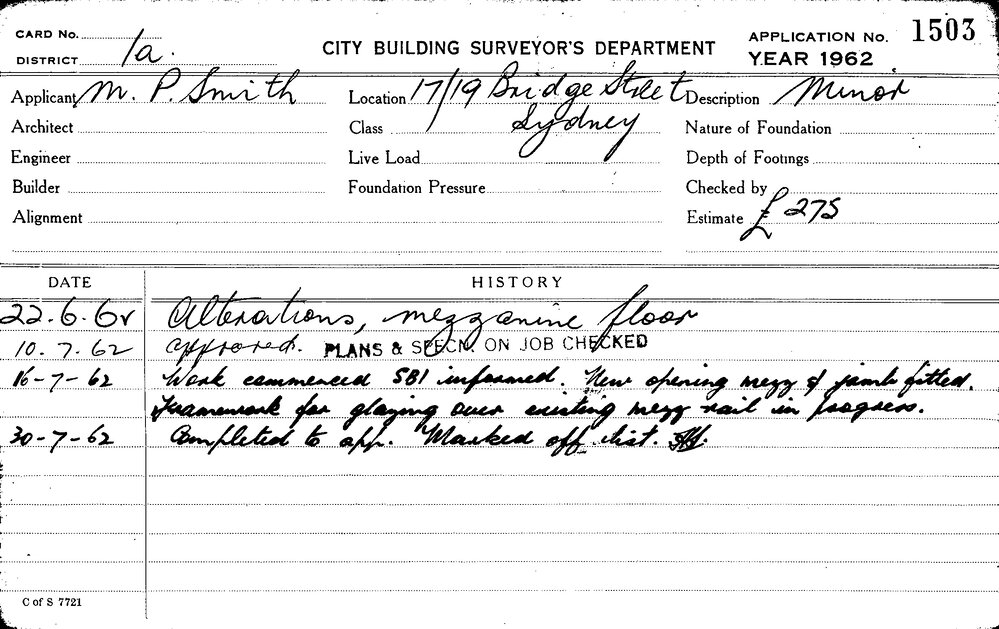 CARD No.
DISTRICT 1a.
CITY BUILDING SURVEYOR'S DEPARTMENT
APPLICATION No. 1503
YEAR 1962
Applicant M. P. Smith Location 17/19 Bridge Street Description Minor
Sydney
Architect Class Nature of Foundation
Engineer Live Load Depth of Footings
Builder Foundation Pressure Checked by
Alignment Estimate £ 275
DATE HISTORY
22.6.62 Alterations, mezzanine floor
10.7.62 approved. PLANS & SPECN. ON JOB CHECKED
16-7-62 Work commenced SBI informed. New opening mezz & jamb fitted.
Framework for glazing over existing mezz rail in progress.
30-7-62 Completed to app. Marked off list.
C of S 7721